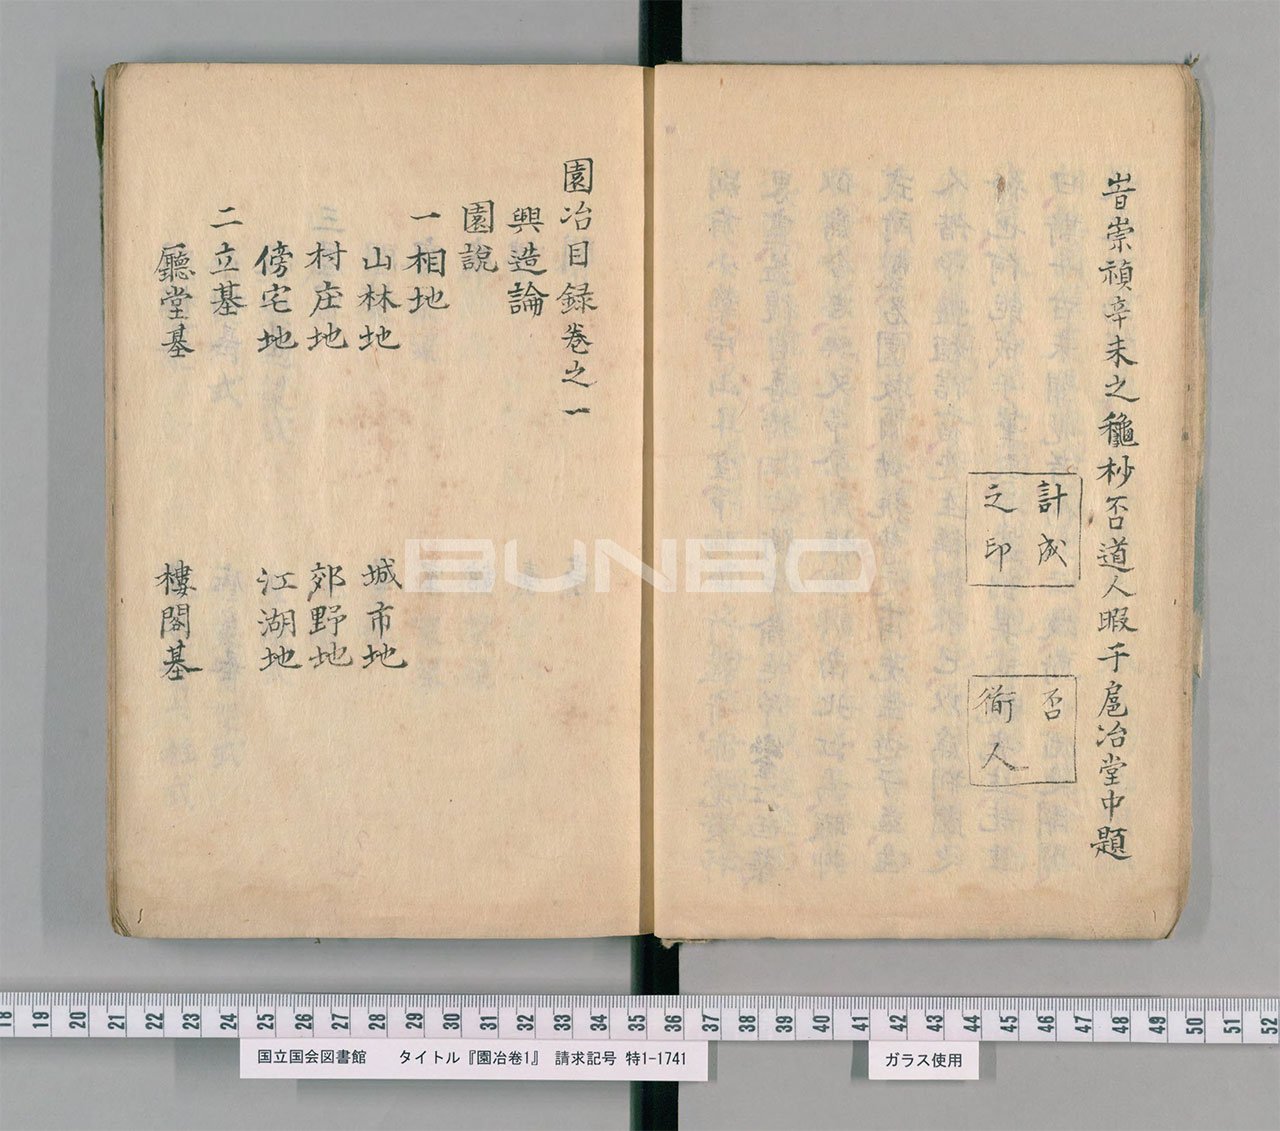 旹崇禎辛未之穐杪否道人暇于扈冶堂中題
計成
之印
否
衜人
園冶目録卷之一
興造論
園說
一相地
山林地 城市地
村庄地 郊野地
傍宅地 江湖地
二立基
廳堂基 樓閣基
BUNBO
18 19 20 21 22 23 24 25 26 27 28 29 30 31 32 33 34 35 36 37 38 39 40 41 42 43 44 45 46 47 48 49 50 51 52
国立国会図書館 タイトル『園冶巻1』 請求記号 特1-1741
ガラス使用